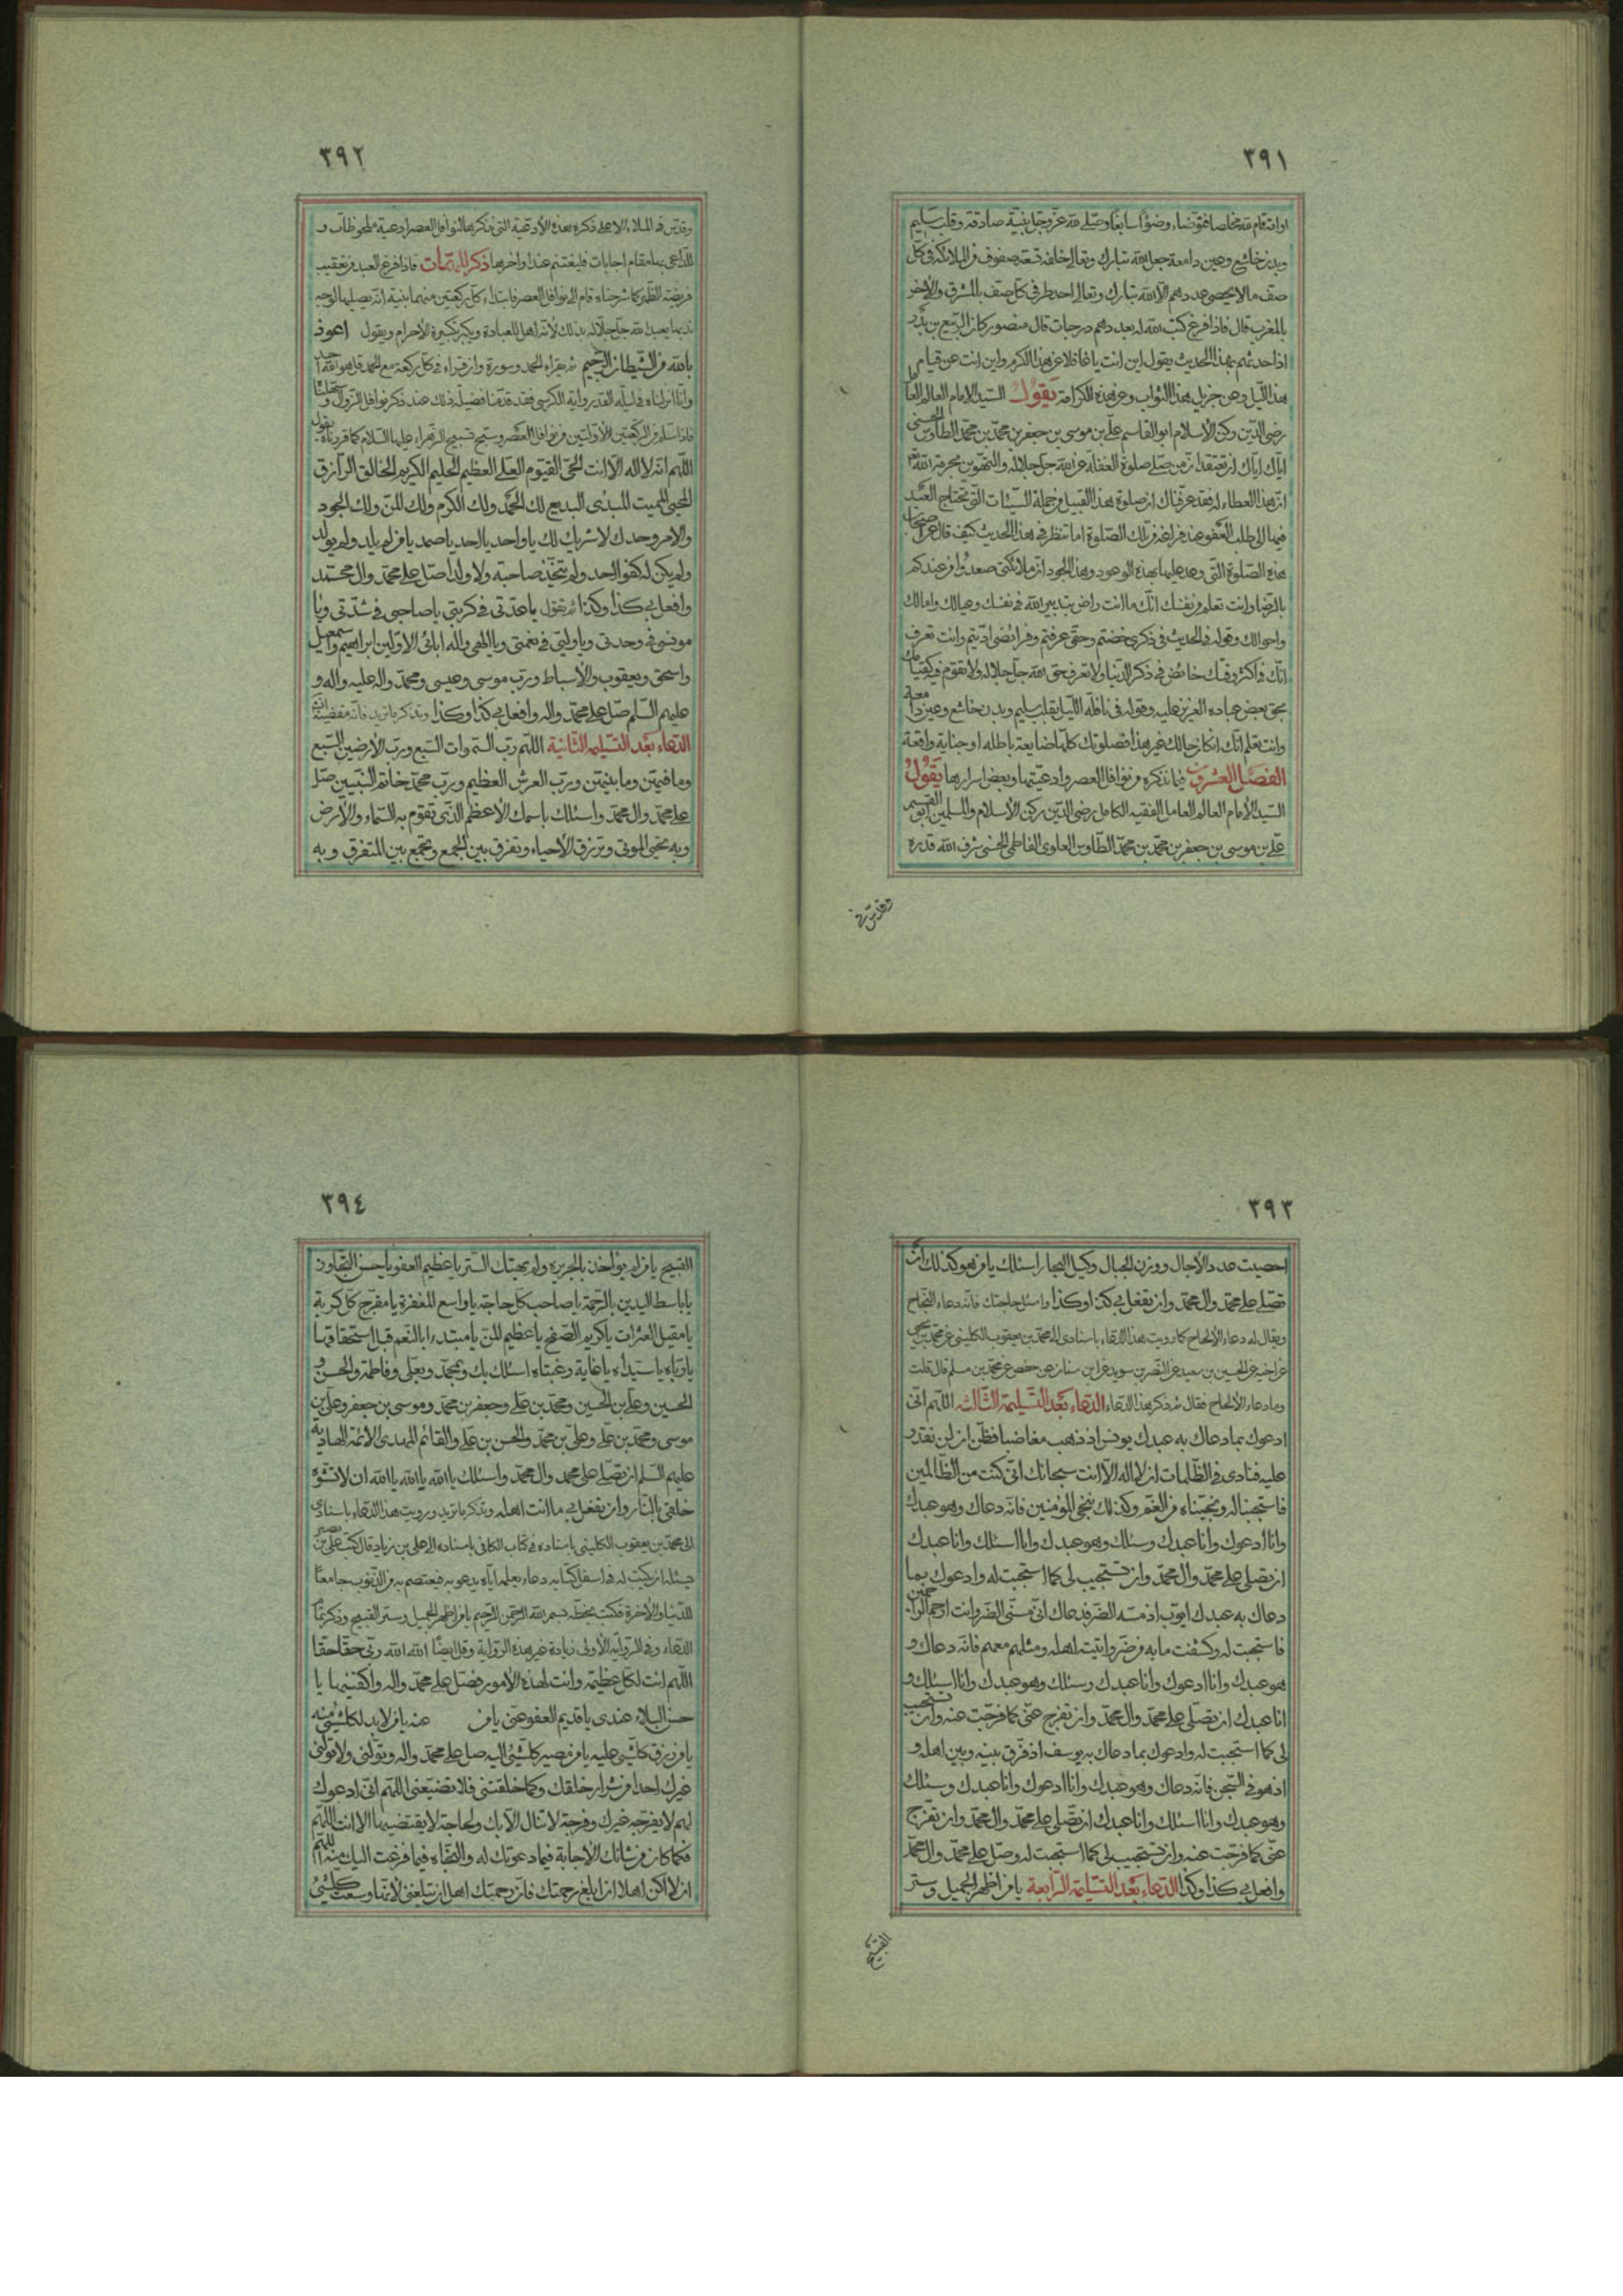 ٣٩١
او انه قام لله مخلصا فتوضاء وضوأ سابغا وصلى لله عز وجل بنية صادقة وقلب سليم
وبدن خاشع وعين دامعة جعل الله تبارك وتعالى خلفه تسعة صفوف من الملائكة في كل
صف ما لا يحصى عددهم الا الله تبارك وتعالى احد طرفي كل صف بالمشرق والاخر
بالمغرب قال فاذا فرغ كتب الله له بعددهم درجات قال منصور كان الربيع بن بدر
اذا حدثهم بهذا الحديث يقول اين انت يا غافلا عن هذا الكرم واين انت عن قيام
هذا الليل وعن جزيل هذا الثواب وعن هذه الكرامة يقول السيد الامام العالم العامل
رضى الدين ركن الاسلام ابو القاسم على بن موسى بن جعفر بن محمد بن محمد الطاوس الحسنى
اياك اياك ان تعتقد ان من صلى صلوة الغفلة عن الله جل جلاله والتهوين بحرمة الله
ان هذا العطاء له فقد عرفناك ان صلوة هذا القبيل من جملة السيئات التى يحتاج العبد
فيها الى طلب العفو عند فراغه من تلك الصلوة اما تنظر في هذا الحديث كيف قال عن صاحب
هذه الصلوة التى وعد عليها بهذه الوعود وهذا الجود ان ملائكتى صعدوا من عندكم
بالرضا وانت تعلم من نفسك انك ما انت راض بتدبير الله في نفسك وعيالك وامالك
واحوالك وقوله في الحديث في ذكرى خضتم وحقى عرفتم وفرائضى اديتم وانت تعرف
انك في اكثر وقتك خائض في ذكر الدنيا ولا تعرف حق الله جل جلاله ولا تقوم فيه كقيامك
بحق بعض عباده العزيز عليه وقوله في نافلة الليل بقلب سليم وبدن خاشع وعين دامعة
وانت تعلم انك ان كان حالك غير هذا فصلوتك كلها ضايعة باطلة او جناية واقعة
الفصل العشرون فيما نذكره من نوافل العصر وادعيتها وبعض اسرارها يقول
السيد الامام العالم العامل الفقيه الكامل رضى الدين ركن الاسلام والمسلمين ابو القسم
على بن موسى بن جعفر بن محمد بن محمد الطاوس العلوى الفاطمى الحسنى شرف الله قدره
وقدس في
٣٩٢
وقدس في الملاء الاعلى ذكره هذه الادعية التى نذكرها لنوافل العصر ادعية ملحوظات و
للداعى بها مقام اجابات فليغتنم عند اواخرها ذكر المهمات فاذا فرغ العبد من تعقيب
فريضة الظهر كما شرحناه قام الى نوافل العصر فابتداء كل ركعتين منها بنية انه يصليها لوجه
ندبها يعبد الله جل جلاله بذلك لانه اهل للعبادة ويكبر تكبيرة الاحرام ويقول اعوذ
بالله من الشيطان الرجيم ثم يقراء الحمد وسورة وان قراء في كل ركعة مع الحمد قل هو الله احد
وانا انزلناه في ليلة القدر واية الكرسى فقد قدمنا فضيلة ذلك عند ذكر نوافل الزوال
فاذا سلم من الركعتين الاولتين من نوافل العصر وسبح تسبيح الزهراء عليها السلام كما قررناه يقول
اللهم انه لا اله الا انت الحى القيوم العلى العظيم الحليم الكريم الخالق الرازق
المحيى المميت المبدئ البديع لك الحمد ولك الكرم ولك المن ولك الجود
والامر وحدك لا شريك لك يا واحد يا احد يا صمد يا من لم يلد ولم يولد
ولم يكن له كفوا احد ولم يتخذ صاحبة ولا ولدا صل على محمد وال محمد
وافعل بى كذا وكذا ثم تقول يا عدتى في كربتى يا صاحبى في شدتى ويا
مونسى في وحدتى ويا وليى في نعمتى ويا الهى واله ابائى الاولين ابراهيم واسمعيل
واسحق ويعقوب والاسباط ورب موسى وعيسى ومحمد واله عليه واله و
عليهم السلم صل على محمد واله وافعل بى كذا وكذا ويذكر ما تريد
الدعاء بعد التسليمة الثانية اللهم رب السموات السبع ورب الارضين السبع
وما فيهن وما بينهن ورب العرش العظيم ورب محمد خاتم النبيين صل
على محمد وال محمد واسئلك باسمك الاعظم الذى تقوم به السماء والارض
وبه تحيى الموتى وترزق الاحياء وتفرق بين الجمع وتجمع بين المتفرق وبه
٣٩٣
احصيت عدد الاجال ووزن الجبال وكيل البحار اسئلك يا من هو كذلك ان
تصلى على محمد وال محمد وان تفعل بى كذا وكذا واسئل حاجتك فانه دعاء النجاح
ويقال له دعاء الالحاح كما رويت هذا الدعاء باسنادى الى محمد بن يعقوب الكلينى عن محمد بن يحيى
عن اخيه عن الحسين بن سعيد عن النضر بن سويد عن ابن سنان عن حفص عن محمد بن مسلم قال قلت
وما دعاء الالحاح فقال ثم ذكر هذا الدعاء الدعاء بعد التسليمة الثالثة اللهم انى
ادعوك بما دعاك به عبدك يونس اذ ذهب مغاضبا فظن ان لن نقدر
عليه فنادى في الظلمات ان لا اله الا انت سبحانك انى كنت من الظالمين
فاستجبنا له ونجيناه من الغم وكذلك ننجى المؤمنين فانه دعاك وهو عبدك
وانا ادعوك وانا عبدك وسئلك وهو عبدك وانا اسئلك وانا عبدك
ان تصلى على محمد وال محمد وان تستجيب لى كما استجبت له وادعوك بما
دعاك به عبدك ايوب اذ مسه الضر فدعاك انى مسنى الضر وانت ارحم الراحمين
فاستجبت له وكشفت ما به من ضر واتيته اهله ومثلهم معهم فانه دعاك و
هو عبدك وانا ادعوك وانا عبدك وسئلك وهو عبدك وانا اسئلك و
انا عبدك ان تصلى على محمد وال محمد وان تفرج عنى كما فرجت عنه وان تستجيب
لى كما استجبت له وادعوك بما دعاك به يوسف اذ فرق بينه وبين اهله و
اذ هو في السجن فانه دعاك وهو عبدك وانا ادعوك وانا عبدك وسئلك
وهو عبدك وانا اسئلك وانا عبدك ان تصلى على محمد وال محمد وان تفرج
عنى كما فرجت عنه وان تستجيب لى كما استجبت له وصل على محمد وال محمد
وافعل بى كذا وكذا الدعاء بعد التسليمة الرابعة يا من اظهر الجميل وستر
القبيح
٣٩٤
القبيح يا من لم يواخذ بالجريرة ولم يهتك الستر يا عظيم العفو يا حسن التجاوز
يا باسط اليدين بالرحمة يا صاحب كل حاجة يا واسع المغفرة يا مفرج كل كربة
يا مقيل العثرات يا كريم الصفح يا عظيم المن يا مبتدءا بالنعم قبل استحقاقها
يا رباه يا سيداه يا غاية رغبتاه اسئلك بك وبمحمد وبعلى وفاطمة والحسن و
الحسين وعلى بن الحسين ومحمد بن على وجعفر بن محمد وموسى بن جعفر وعلى بن
موسى ومحمد بن على وعلى بن محمد والحسن بن على والقائم المهدى الائمة الهادية
عليهم السلم ان تصلى على محمد وال محمد واسئلك يا الله يا الله يا الله ان لا تشوه
خلقى بالنار وان تفعل بى ما انت اهله وتذكر ما تريد ورويت هذا الدعاء باسنادى
الى محمد بن يعقوب الكلينى باسناده في كتاب الكافى باسناده الى على بن زياد قال كتب على بن بصير
يسئله ان يكتب له في اسفل كتابه دعاء يعلمه اياه يدعو به فيعتصم به من الذنوب جامعا
للدنيا والاخرة فكتب بخطه بسم الله الرحمن الرحيم يا من اظهر الجميل وستر القبيح وذكر
الدعاء وفي الرواية الاولى زيادة غير هذه الرواية وقل ايضا الله الله ربى حقا حقا
اللهم انت لكل عظيمة وانت لهذه الامور فصل على محمد واله واكفنيها يا
حسن البلاء عندى يا قديم العفو عنى يا من عنه يا من لا بد لكل شئ منه
يا من رزق كل شئ عليه يا من مصير كل شئ اليه صل على محمد واله وتولنى ولا تولنى
غيرك احدا من شرار خلقك وكما خلقتنى فلا تضيعنى اللهم انى ادعوك
لهم لا يفرجه غيرك ورحمة لا تنال الا بك ولحاجة لا يقضيها الا انت اللهم
فكما كان من شانك الاجابة فيما دعوتك له والنجاة فيما فزعت اليك منه اللهم
ان لا اكن اهلا ان ابلغ رحمتك فان رحمتك اهل ان تبلغنى لانها وسعت كل شئ